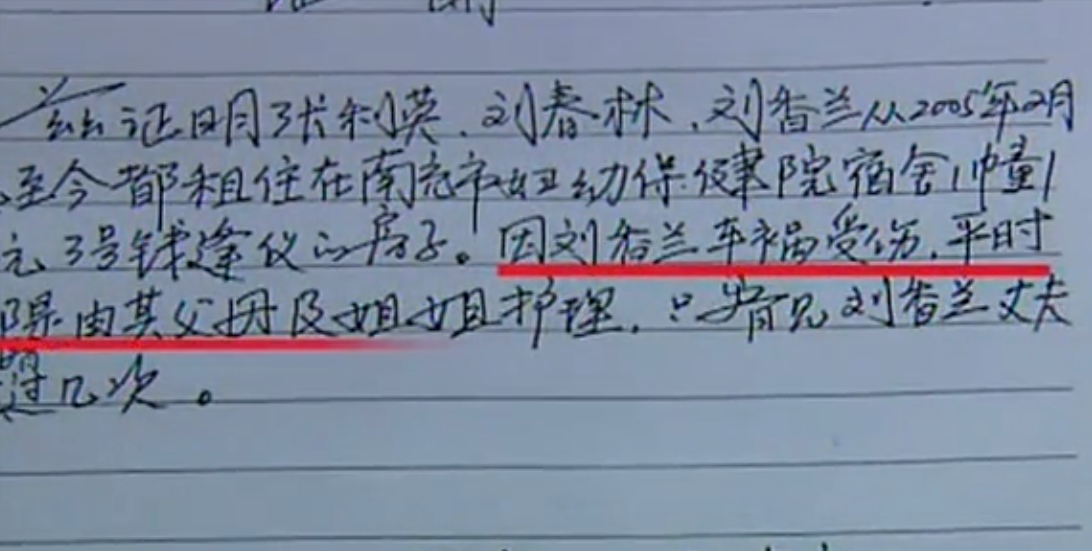 证明
兹证明张利英、刘春林、刘香兰从2005年2月
至今都租住在南充市妇幼保健院宿舍1幢1
元3号钱逢仪的房子。因刘香兰车祸受伤，平时
是由其父母及姐姐护理，只看见刘香兰丈夫
过几次。